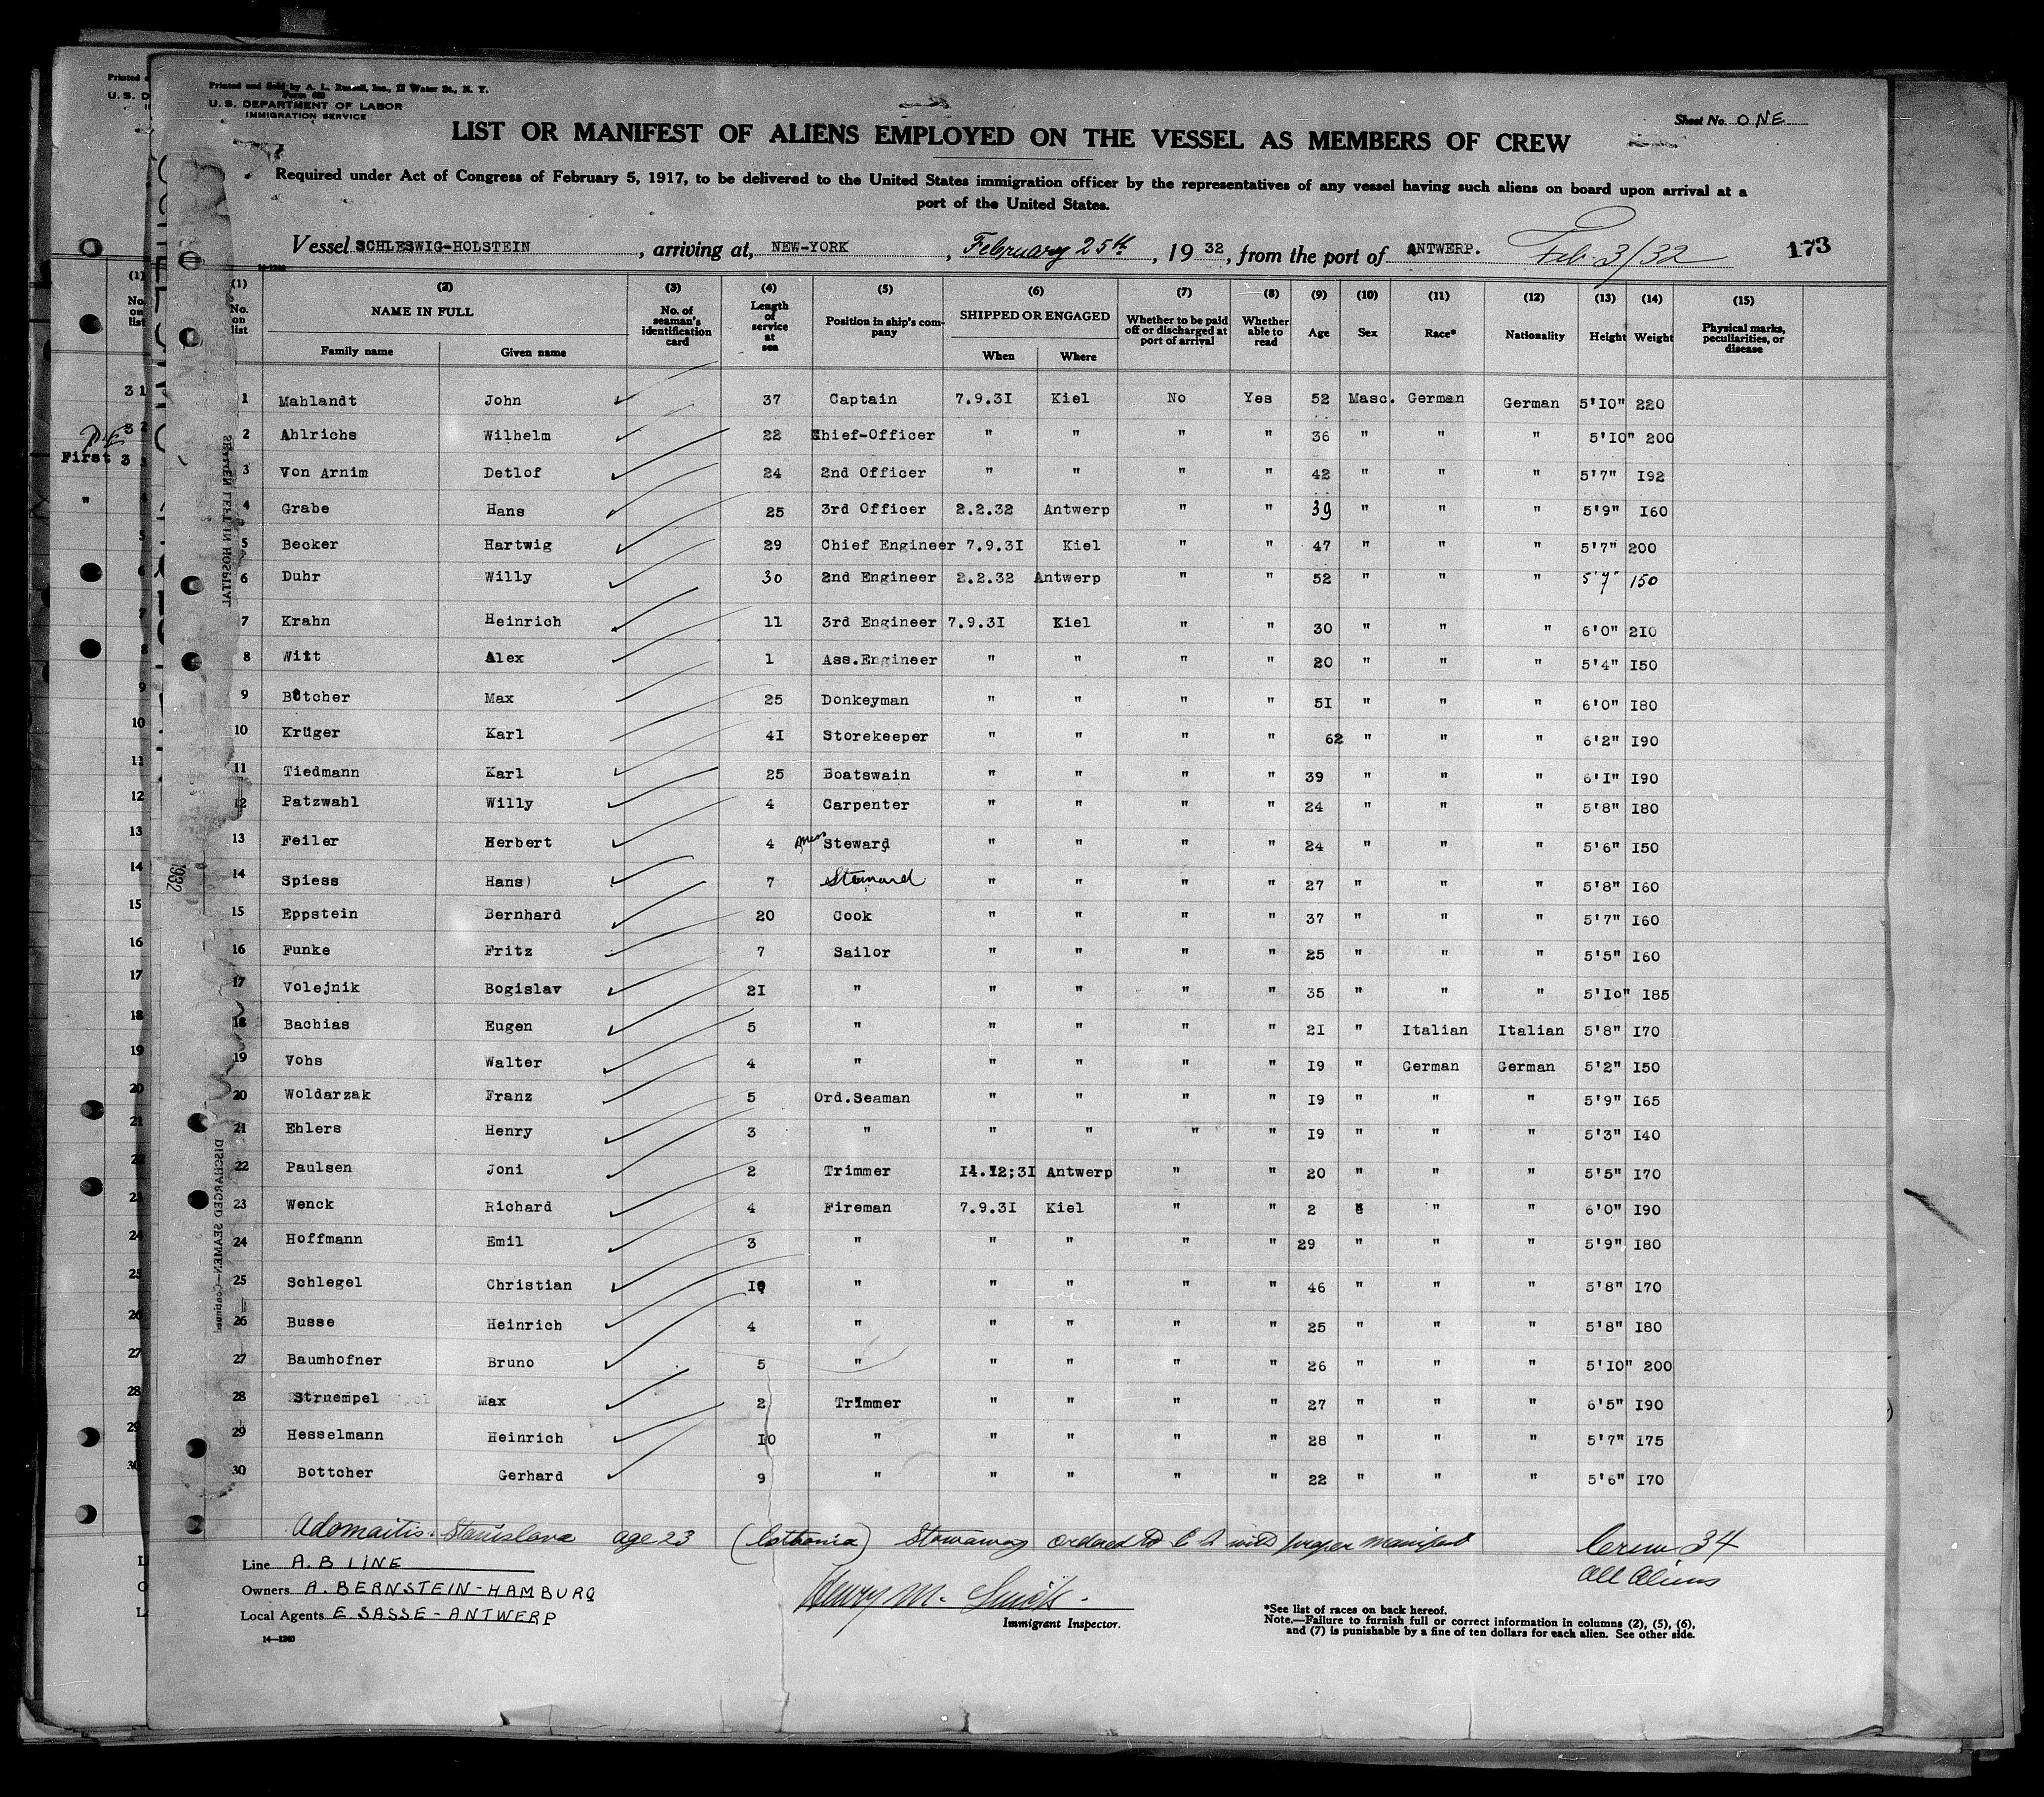 Printed and Sold by A. L. Russell, Inc., 12 Water St., N. Y.
U. S. DEPARTMENT OF LABOR
IMMIGRATION SERVICE
Sheet No. ONE
LIST OR MANIFEST OF ALIENS EMPLOYED ON THE VESSEL AS MEMBERS OF CREW
Required under Act of Congress of February 5, 1917, to be delivered to the United States immigration officer by the representatives of any vessel having such aliens on board upon arrival at a
port of the United States.
Vessel SCHLESWIG-HOLSTEIN, arriving at, NEW-YORK, February 25th, 1932, from the port of ANTWERP. Feb. 3/32 173
14-1240
(1) No. on list (2) NAME IN FULL Family name Given name (3) No. of seaman's identification card (4) Length of service at sea (5) Position in ship's company (6) SHIPPED OR ENGAGED When Where (7) Whether to be paid off or discharged at port of arrival (8) Whether able to read (9) Age (10) Sex (11) Race* (12) Nationality (13) Height (14) Weight (15) Physical marks, peculiarities, or disease
1 Mahlandt John 37 Captain 7.9.3I Kiel No Yes 52 Masc. German German 5'IO" 220
2 Ahlrichs Wilhelm 22 Chief-Officer " " " " 36 " " " 5'IO" 200
3 Von Arnim Detlof 24 2nd Officer " " " " 42 " " " 5'7" I92
4 Grabe Hans 25 3rd Officer 2.2.32 Antwerp " " 39 " " " 5'9" I60
5 Becker Hartwig 29 Chief Engineer 7.9.3I Kiel " " 47 " " " 5'7" 200
6 Duhr Willy 30 2nd Engineer 2.2.32 Antwerp " " 52 " " " 5'7" 150
7 Krahn Heinrich 11 3rd Engineer 7.9.3I Kiel " " 30 " " " 6'0" 2I0
8 Witt Alex 1 Ass.Engineer " " " " 20 " " " 5'4" I50
9 Bötcher Max 25 Donkeyman " " " " 5I " " " 6'0" I80
10 Krüger Karl 4I Storekeeper " " " " 62 " " " 6'2" I90
11 Tiedmann Karl 25 Boatswain " " " " 39 " " " 6'I" I90
12 Patzwahl Willy 4 Carpenter " " " " 24 " " " 5'8" I80
13 Feiler Herbert 4 Mess Steward " " " " 24 " " " 5'6" I50
14 Spiess Hans) 7 Steward " " " " 27 " " " 5'8" I60
15 Eppstein Bernhard 20 Cook " " " " 37 " " " 5'7" I60
16 Funke Fritz 7 Sailor " " " " 25 " " " 5'5" I60
17 Volejnik Bogislav 2I " " " " " 35 " " " 5'Io" I85
18 Bachias Eugen 5 " " " " " 2I " Italian Italian 5'8" I70
19 Vohs Walter 4 " " " " " I9 " German German 5'2" I50
20 Woldarzak Franz 5 Ord.Seaman " " " " I9 " " " 5'9" I65
21 Ehlers Henry 3 " " " " " I9 " " " 5'3" I40
22 Paulsen Joni 2 Trimmer I4.I2;3I Antwerp " " 20 " " " 5'5" I70
23 Wenck Richard 4 Fireman 7.9.3I Kiel " " 2 8 " " 6'0" I90
24 Hoffmann Emil 3 " " " " " 29 " " " 5'9" I80
25 Schlegel Christian " " " " " 46 " " " 5'8" I70
26 Busse Heinrich 4 " " " " " 25 " " " 5'8" I80
27 Baumhofner Bruno 5 " " " " " 26 " " " 5'IO" 200
28 Struempel Max 2 Trimmer " " " " 27 " " " 6'5" I90
29 Hesselmann Heinrich I0 " " " " " 28 " " " 5'7" I75
30 Bottcher Gerhard 9 " " " " " 22 " " " 5'6" I70
Adomaitis. Stanislava age 23 Stowaway ordered to with proper manifest Crew 34
All Aliens
Line A.B LINE
Owners A. BERNSTEIN-HAMBURG
Local Agents E SASSE-ANTWERP
14-1240
Henry M. Smith.
Immigrant Inspector.
*See list of races on back hereof.
Note.—Failure to furnish full or correct information in columns (2), (5), (6),
and (7) is punishable by a fine of ten dollars for each alien. See other side.
First 3
SEAMEN LEFT IN HOSPITAL
1932
DISCHARGED SEAMEN—Continued